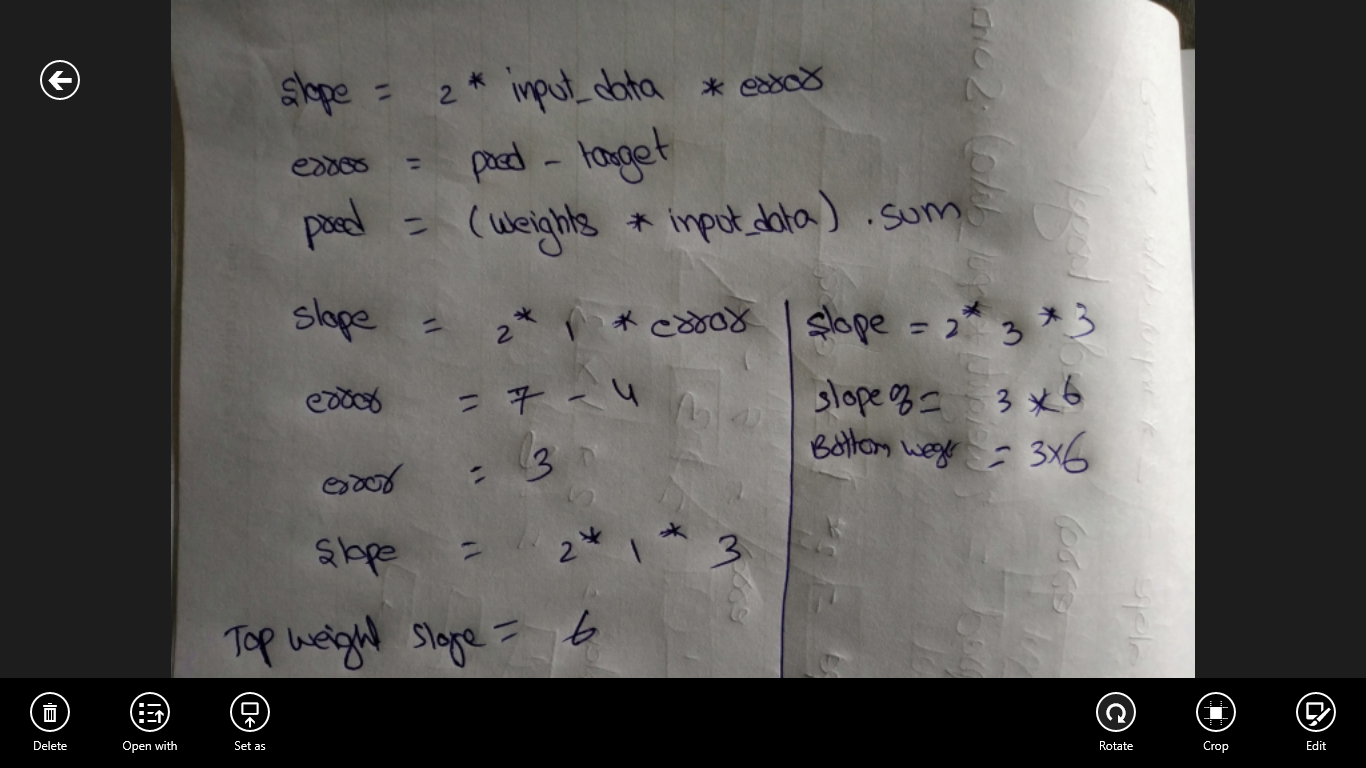 slope = 2 * input_data * error
error = pred - target
pred = (weights * input_data) . sum
slope = 2 * 1 * error
error = 7 - 4
error = 3
slope = 2 * 1 * 3
Top weight slope = 6
slope = 2 * 3 * 3
slope of = 3 x 6
Bottom = 3x6
Delete
Open with
Set as
Rotate
Crop
Edit